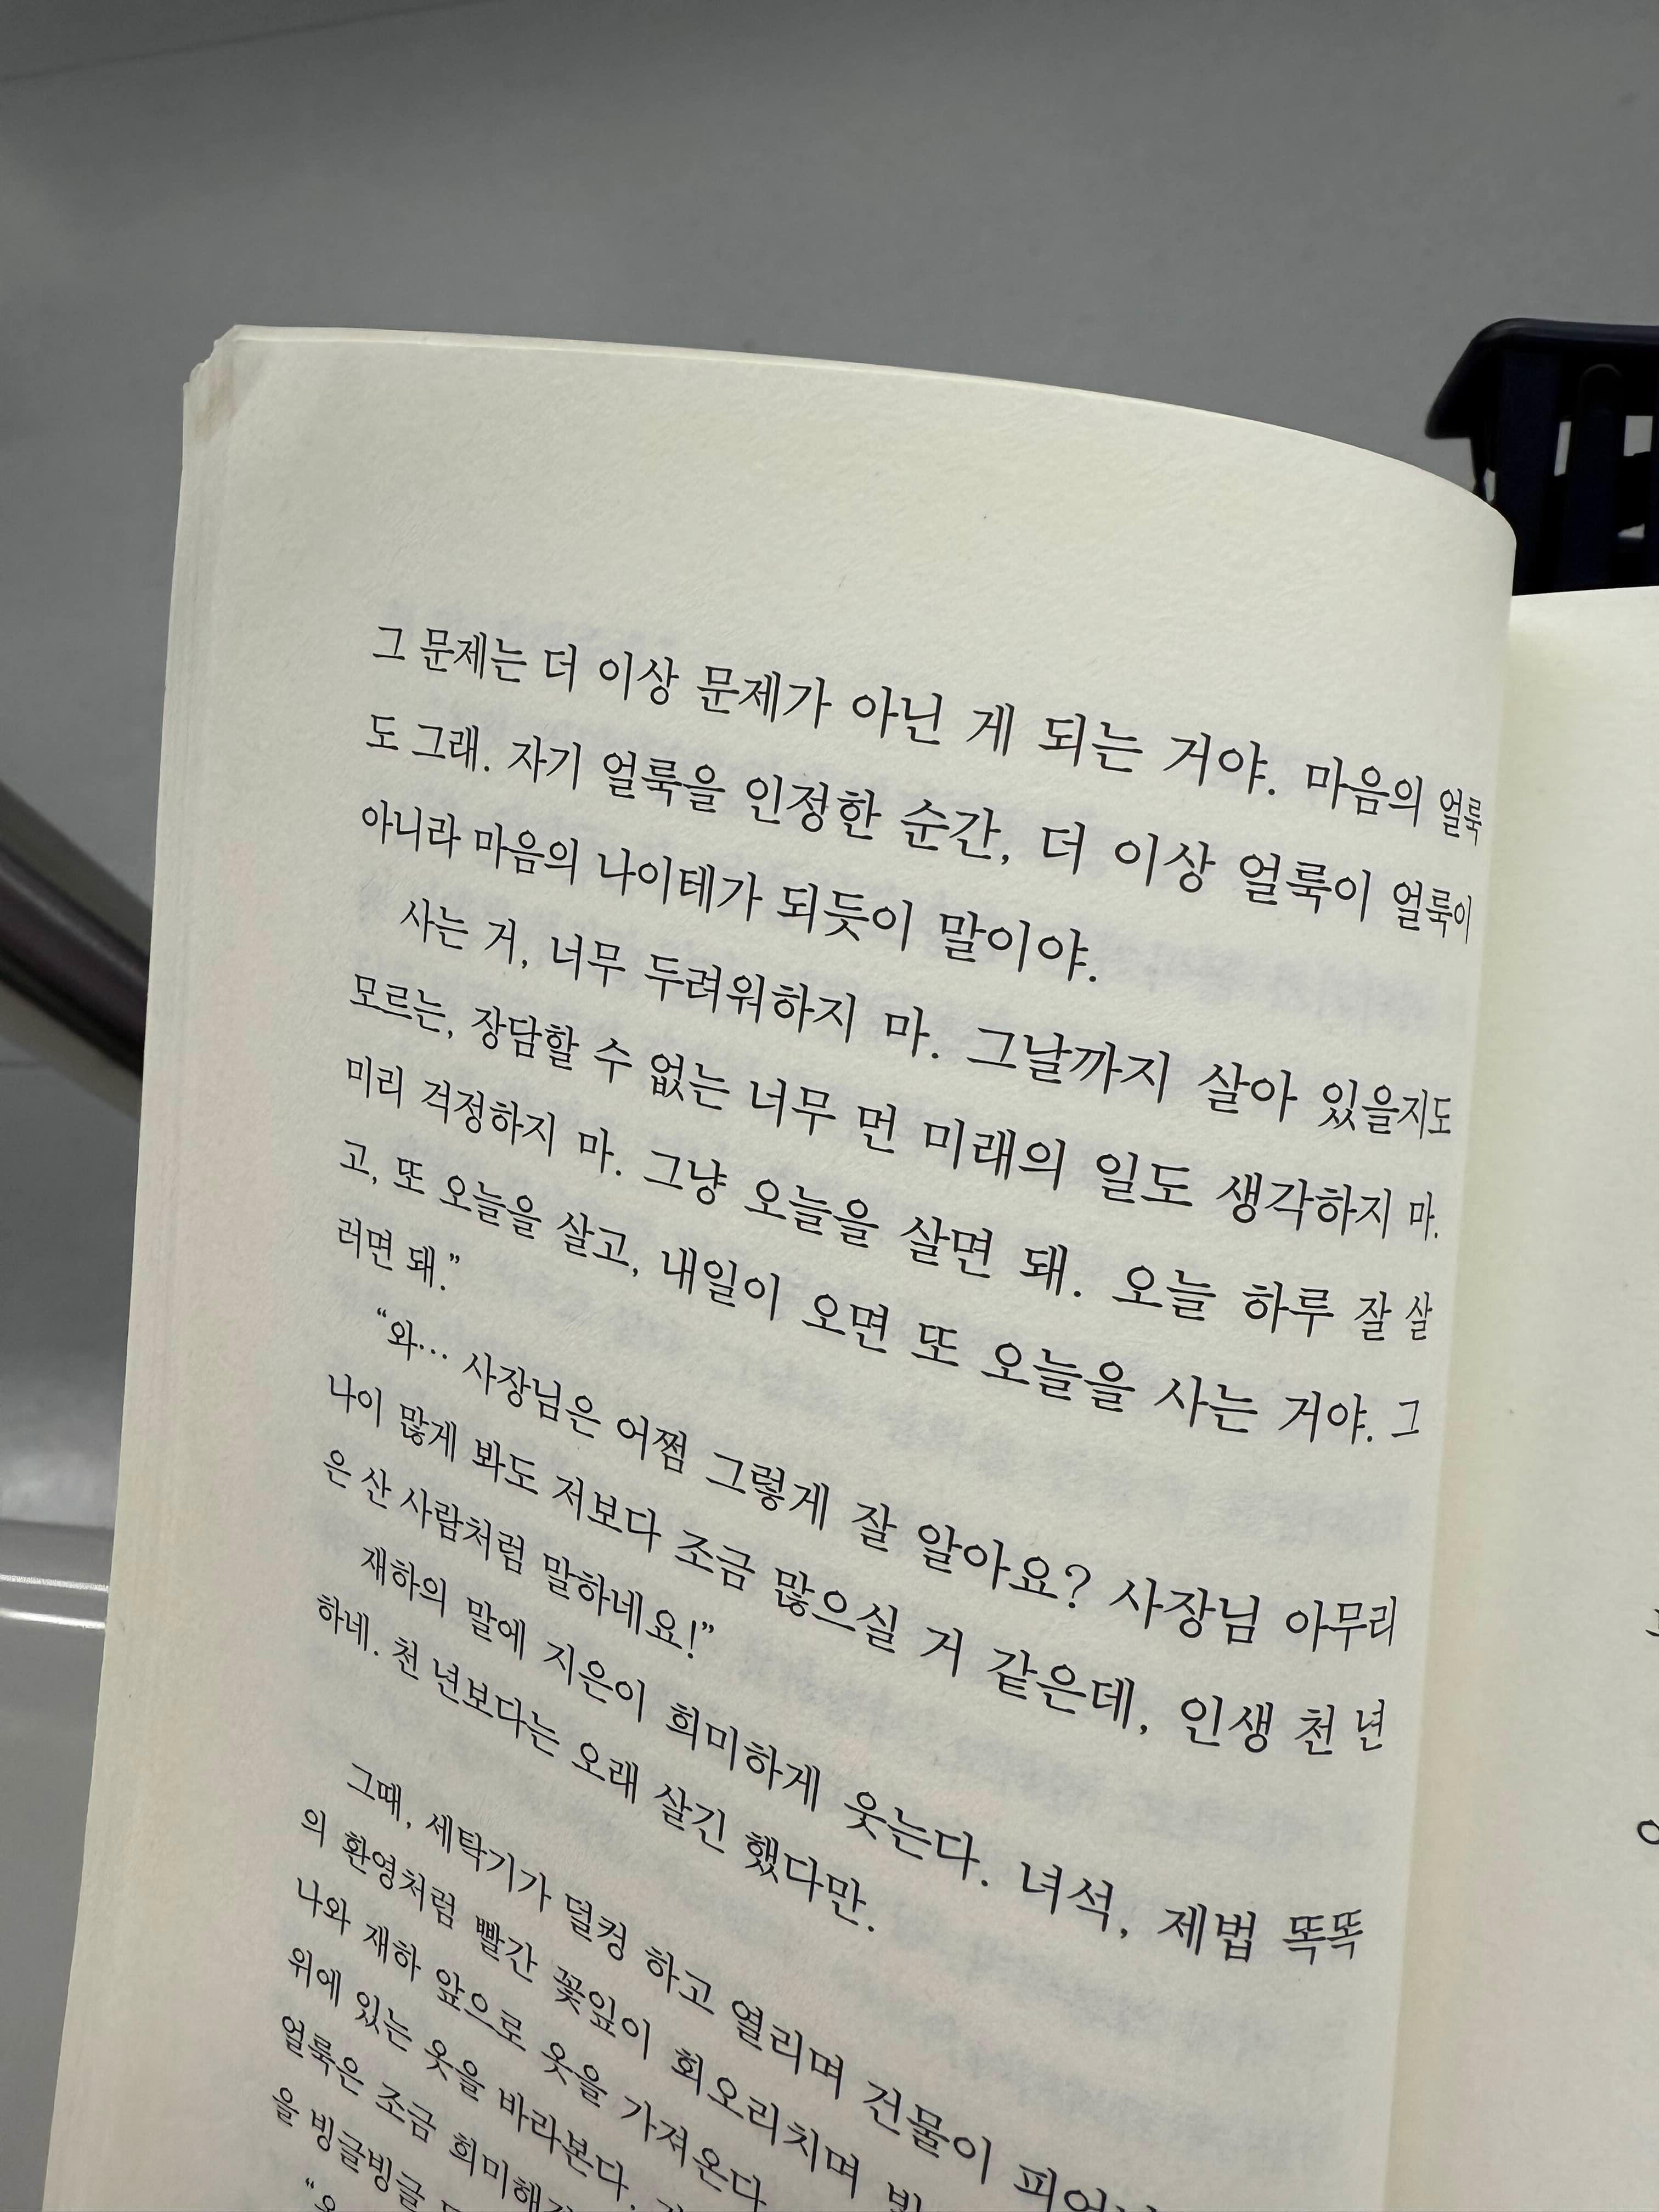 그 문제는 더 이상 문제가 아닌 게 되는 거야. 마음의 얼룩
도 그래. 자기 얼룩을 인정한 순간, 더 이상 얼룩이 얼룩이
아니라 마음의 나이테가 되듯이 말이야.
사는 거, 너무 두려워하지 마. 그날까지 살아 있을지도
모르는, 장담할 수 없는 너무 먼 미래의 일도 생각하지 마.
미리 걱정하지 마. 그냥 오늘을 살면 돼. 오늘 하루 잘 살
고, 또 오늘을 살고, 내일이 오면 또 오늘을 사는 거야. 그
러면 돼.”
“와… 사장님은 어쩜 그렇게 잘 알아요? 사장님 아무리
나이 많게 봐도 저보다 조금 많으실 거 같은데, 인생 천 년
은 산 사람처럼 말하네요!”
재하의 말에 지은이 희미하게 웃는다. 녀석, 제법 똑똑
하네. 천 년보다는 오래 살긴 했다만.
그때, 세탁기가 덜컹 하고 열리며 건물이
의 환영처럼 빨간 꽃잎이 회오리치며
나와 재하 앞으로 옷을 가져온다
위에 있는 옷을 바라본다.
얼룩은 조금 희미해
을 빙글빙글